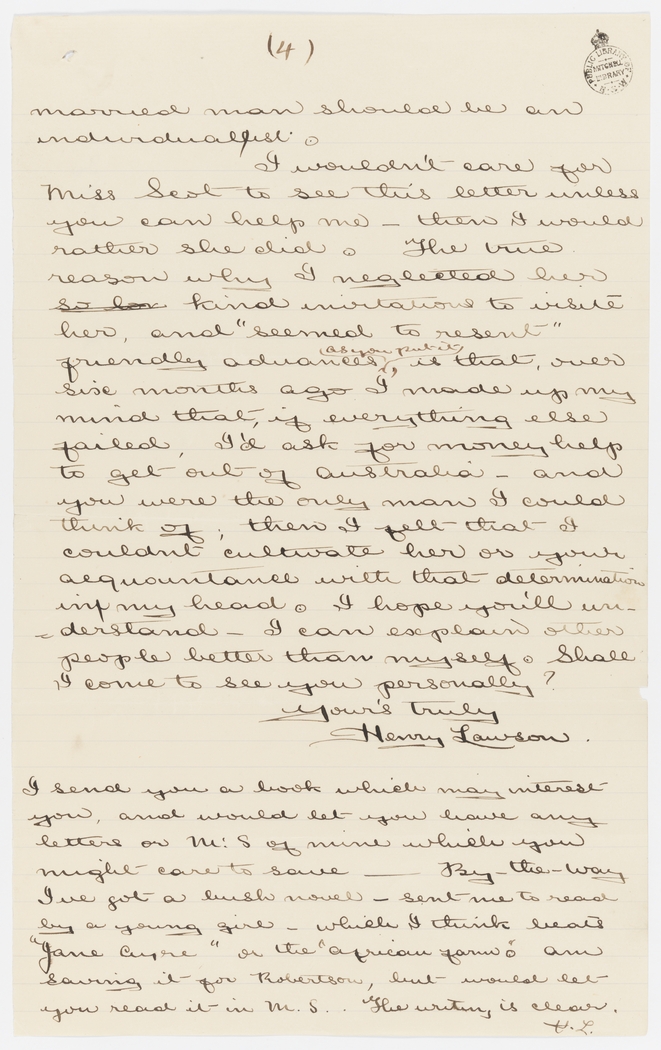 (4)
PUBLIC LIBRARY OF N.S.W.
MITCHELL
LIBRARY
married man should be an
individualist.
I wouldn't care for
Miss Scot to see this letter unless
you can help me – then I would
rather she did. The true
reason why I neglected her
so kind invitations to visit
her, and "seemed to resent"
(as you put it)
friendly advances, is that, over
six months ago I made up my
mind that, if everything else
failed, I'd ask for money help
to get out of Australia – and
you were the only man I could
think of; then I felt that I
couldn't cultivate her or your
acquaintance with that determination
in my head. I hope you'll un-
-derstand – I can explain other
people better than myself. Shall
I come to see you personally?
Your's truly
Henry Lawson.
I send you a book which may interest
you, and would let you have any
letters or M.S of mine which you
might care to save — By-the-way
I've got a bush novel – sent me to read
by a young girl – which I think beats
"Jane Eyre" or the "African farm". am
saving it for Robertson, but would let
you read it in M.S.. The writing is clear.
H.L.